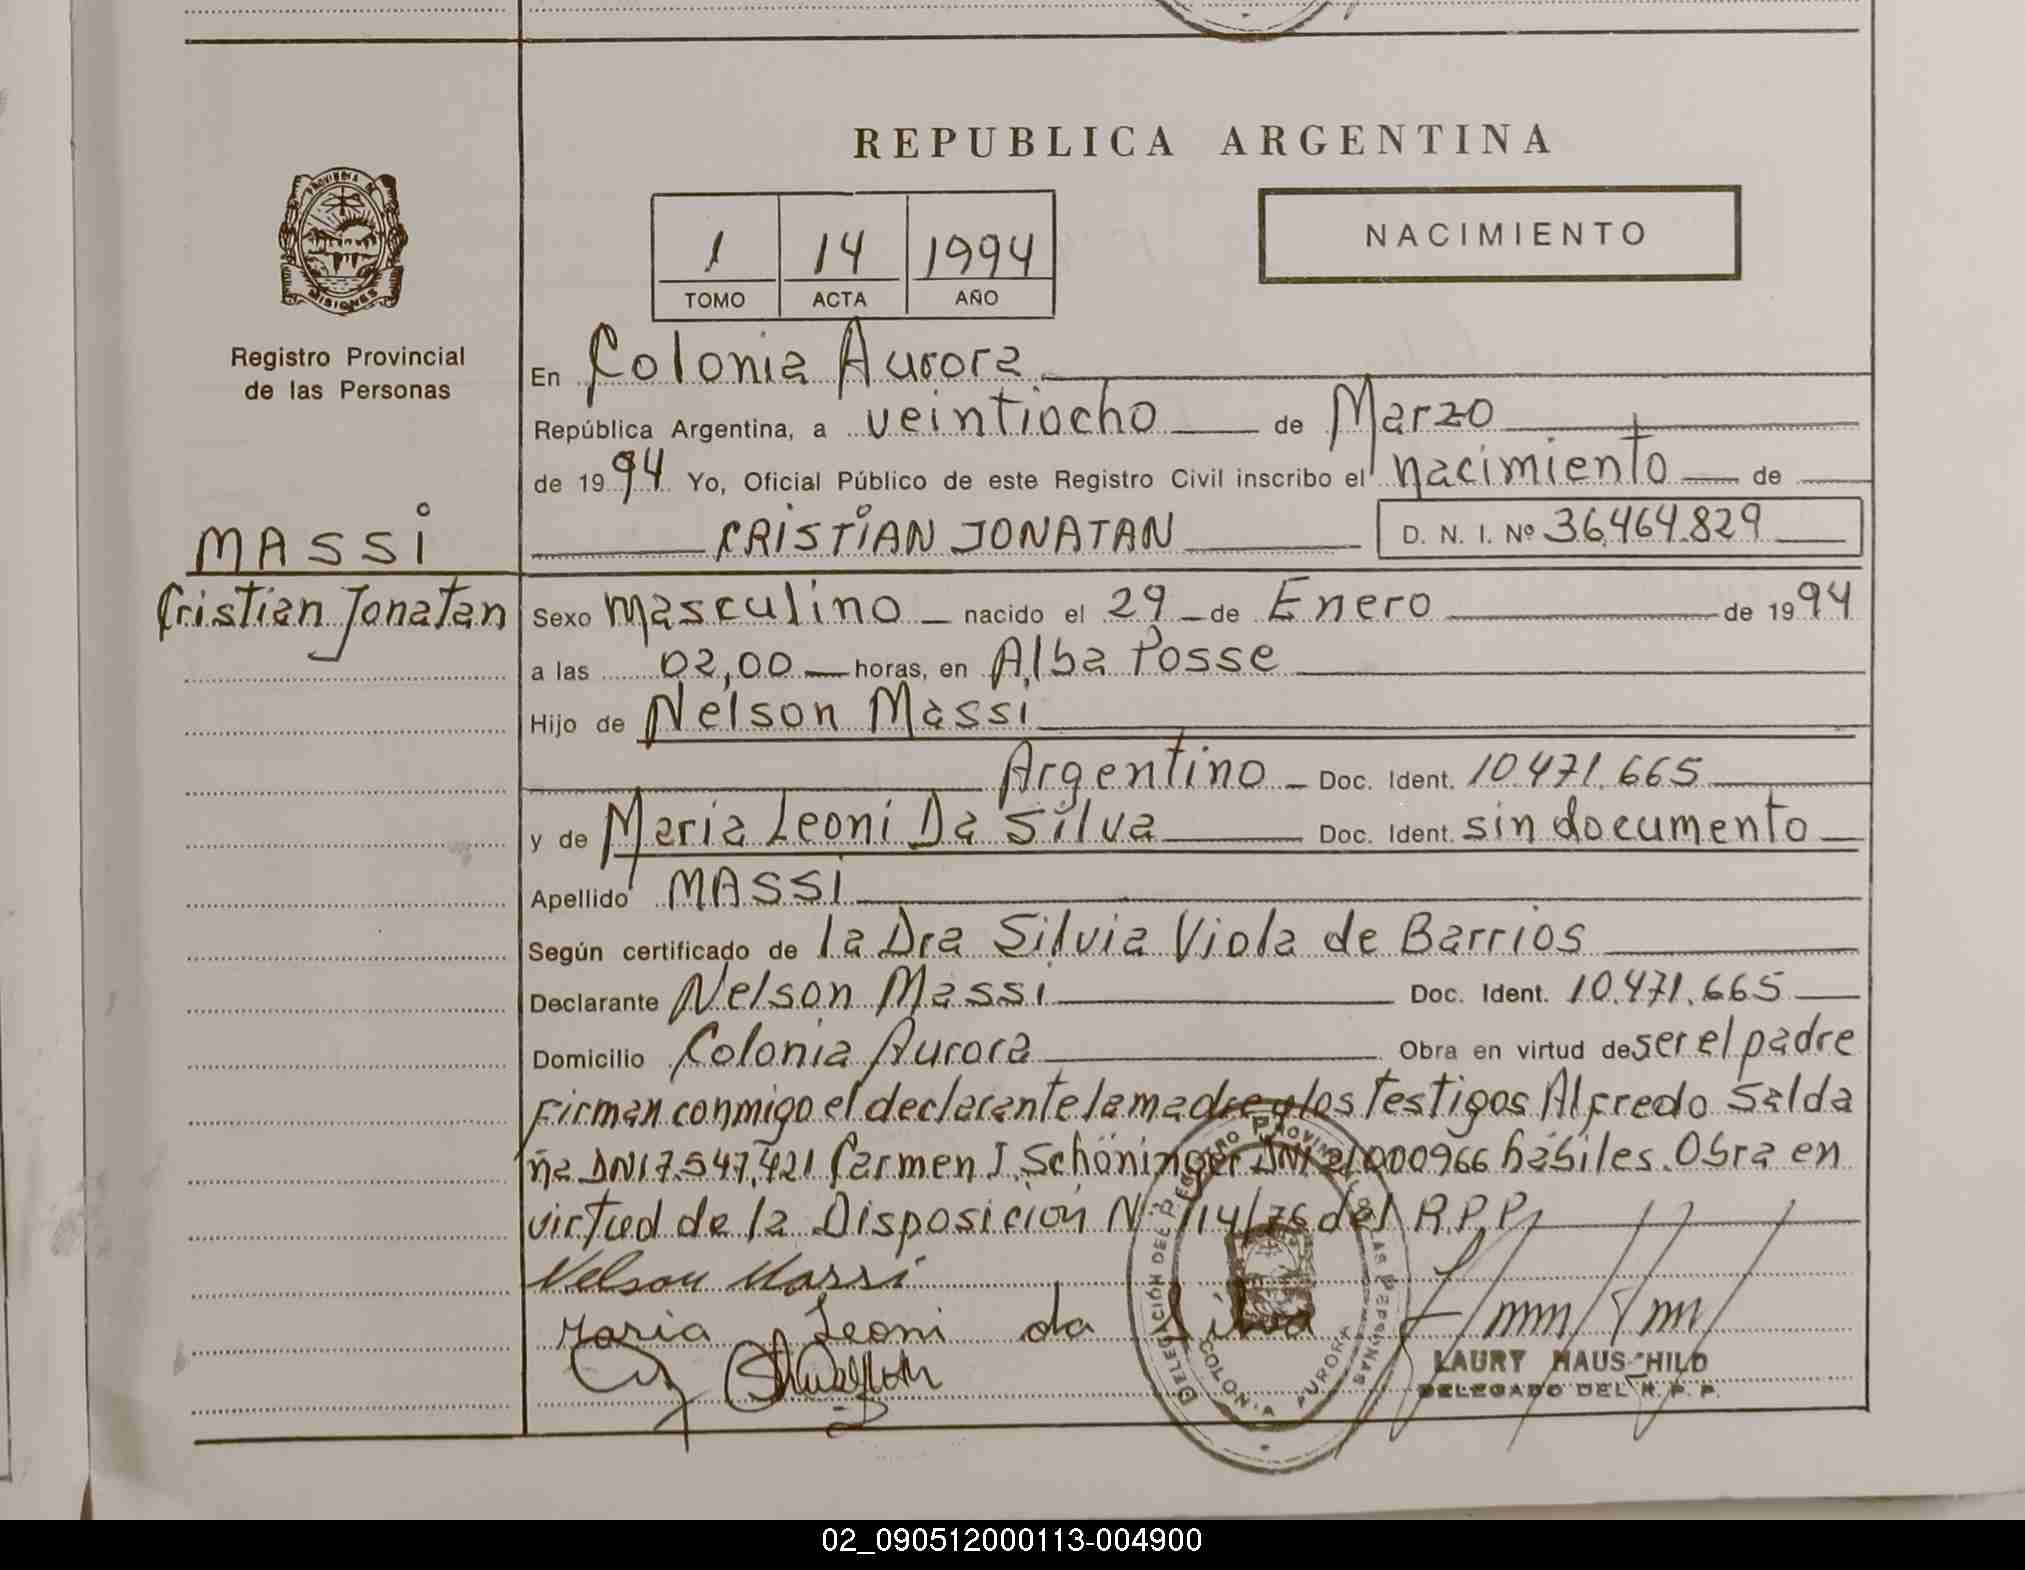 REPUBLICA ARGENTINA
PROVINCIA DE MISIONES
Registro Provincial
de las Personas
1 14 1994
TOMO ACTA AÑO
NACIMIENTO
En Colonia Aurora
República Argentina, a veintiocho de Marzo
de 1994 Yo, Oficial Público de este Registro Civil inscribo el nacimiento de
CRISTIAN JONATAN D. N. I. Nº 36.464.829
MASSI
Cristian Jonatan
Sexo masculino nacido el 29 de Enero de 1994
a las 02,00 horas, en Alba Posse
Hijo de Nelson Massi
Argentino Doc. Ident. 10.471.665
y de Maria Leoni Da Silva Doc. Ident. sin documento
Apellido MASSI
Según certificado de la Dra Silvia Viola de Barrios
Declarante Nelson Massi Doc. Ident. 10.471.665
Domicilio Colonia Aurora Obra en virtud de ser el padre
Firman conmigo el declarante la madre y los testigos Alfredo Salda
ña DNI 7.547.421 Carmen J. Schöninger DNI 21000966 hábiles. Obra en
virtud de la Disposición Nº 114/76 del R.P.P.
Nelson Massi
Maria Leoni da Silva
DELEGACIÓN DEL REGISTRO PROVINCIAL DE LAS PERSONAS
COLONIA AURORA
LAURY HAUSCHILD
DELEGADO DEL R. P. P.
02_090512000113-004900